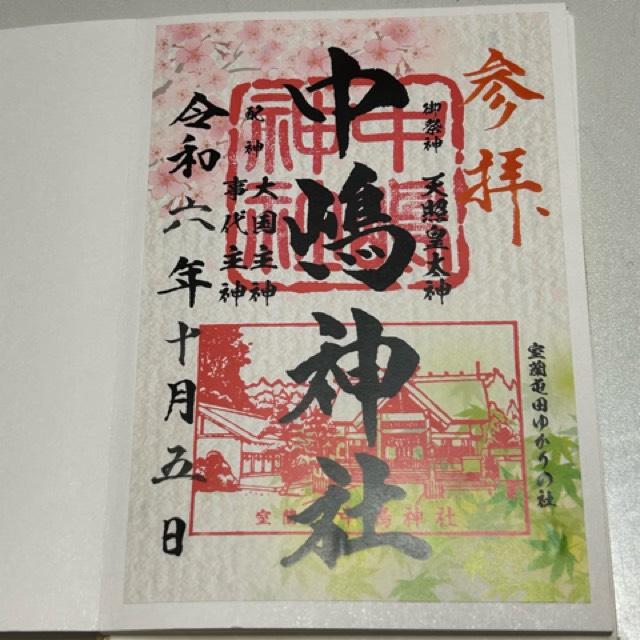 参拝
室蘭屯田ゆかりの社
御祭神 天照皇大神
中嶋神社
中嶋神社
配神 大国主神
事代主神
令和六年十月五日
室蘭 中嶋神社